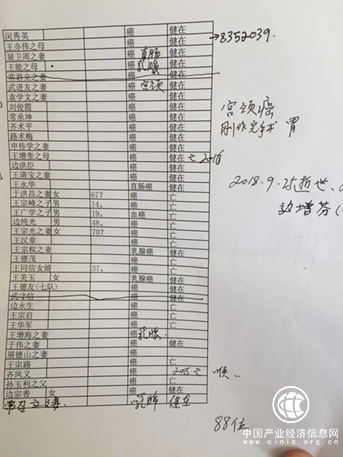 闵秀英 癌 健在 →8352039.
王亦伟之母 癌 健在
展卫周之妻 癌 直肠 健在
王能之母 癌 乳腺 健在
常君立之妻 癌 健在
武进友之妻 癌 宫颈 健在
袁学文之妻 癌 健在
刘俊霞 癌 健在
常承坤 癌 健在
齐术平 癌 健在
路术梅 癌 健在
申传学之妻 癌 健在
王增奎之母 癌 健在
边洪臣 癌 健在
王清宝之妻 癌 健在
王永华 直肠癌 健在
于洪昌之妻 女 67? 癌 亡
王宗峰之子 男 14. 癌 亡
王广学之子 男 19. 血癌 亡
边纯光 男 48. 癌 亡
王宗光之妻 女 70? 癌 亡
王汉章 癌 亡
王宗权之妻 乳腺癌 健在
王德茂 癌 亡
王同信女婿 37. 癌 亡
王美玉 女 乳腺癌 健在
王德友(七队) 癌 健在
武守信 癌 健在
边永生 癌 亡
王宗启 癌 亡
王华军 癌 亡
王增海之妻 癌 乳腺
于伟之妻 癌 健在
展德山之妻 癌
王宗路 癌 亡
齐风义 癌
孙玉利之父 癌 亡
边宗香 女 癌 健在
之妻 乳腺 健在
宫颈癌
刚作完手术 胃
2018.9.25逝世、
边增芬
88位
中国产业经济信息网
www.cinic.org.cn